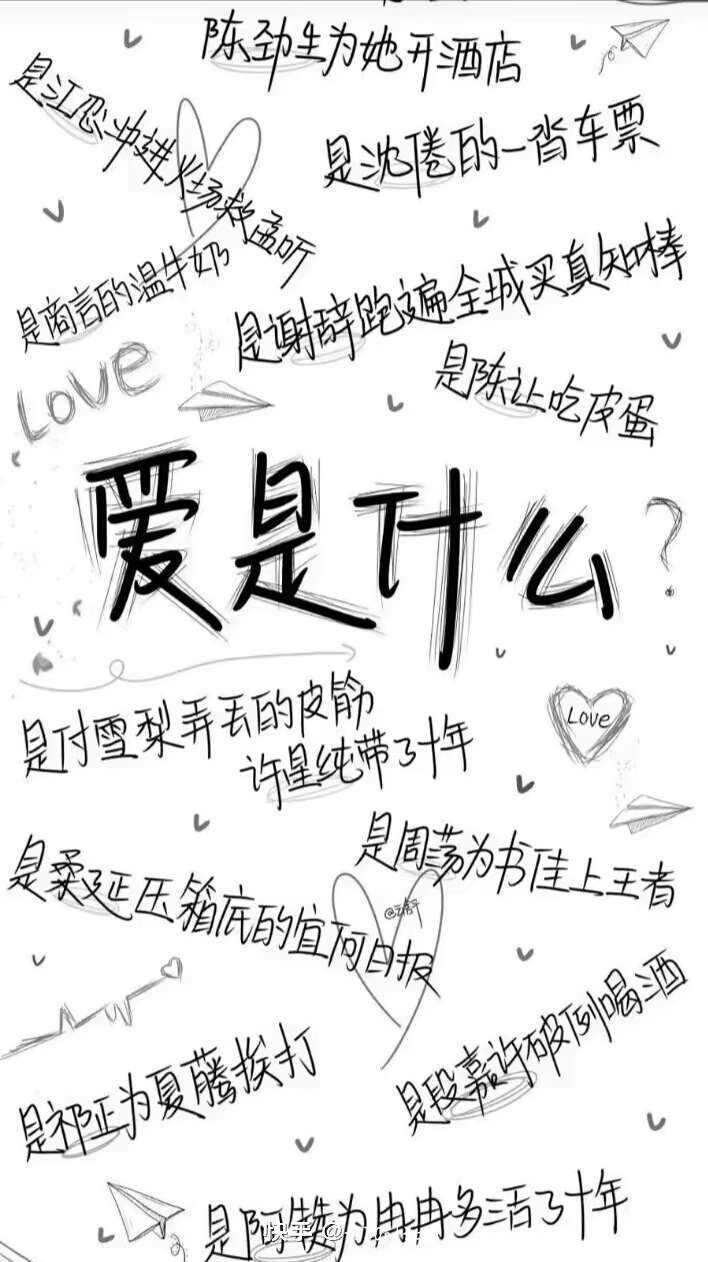 陈劲生为她开酒店
是江忍冲进火场救孟听
是沈倦的一沓车票
是商言的温牛奶
是谢辞跑遍全城买真知棒
Love
是陈让吃皮蛋
爱是什么?
是付雪梨弄丢的皮筋
许星纯带了十年
Love
是周荡为书佳上王者
是柔延压箱底的宜阿日报
是祁正为夏藤挨打
是段嘉许破例喝酒
是阿犊为冉冉多活了十年
快手